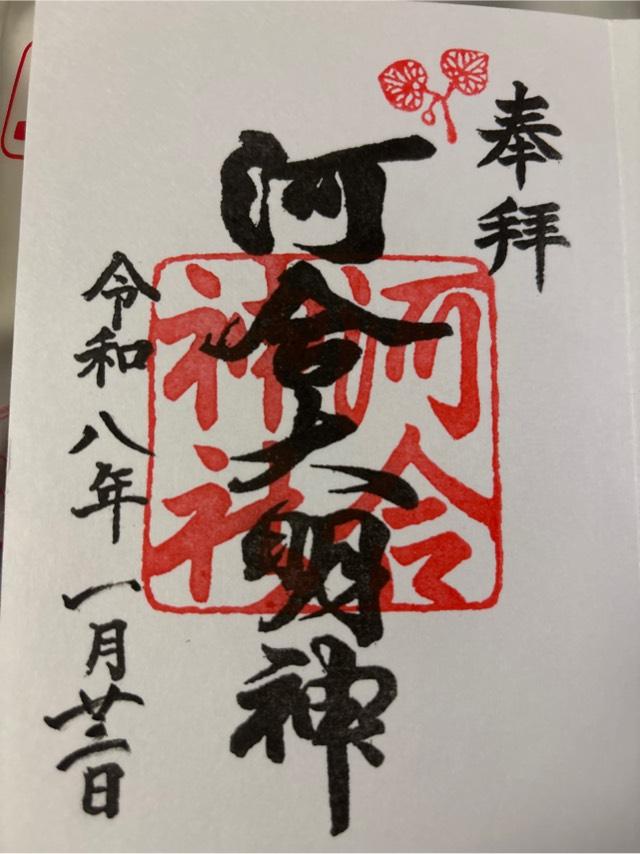 奉拝
河合大明神
河合
神社
令和八年 一月廿二日